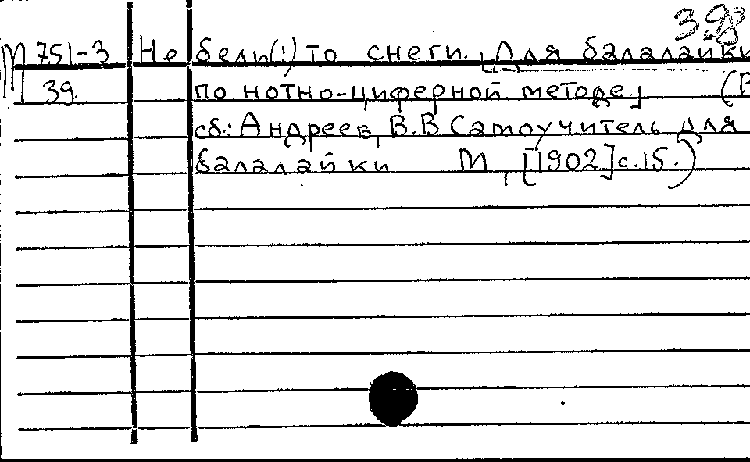 398
М 751-3 Не белы(!) то снеги. [Для балалайки
39. по нотно-циферной методе] (В
сб.: Андреев, В.В Самоучитель для
балалайки М, [1902] с.15.)